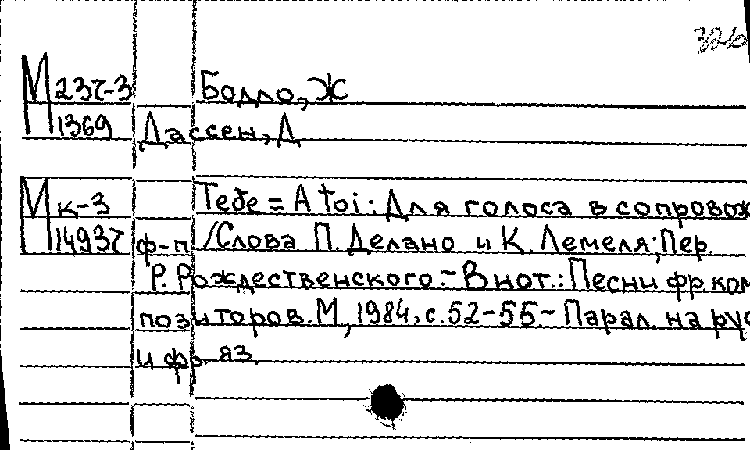 326
М 237-3 Бодло, Ж
1369 Дассен, Д
М к-3 Тебе = A toi: Для голоса в сопровож
14937 ф-п /Слова П. Делано и К. Лемеля; Пер.
Р. Рождественского.- В нот.: Песни фр. ком
позиторов. М., 1984, с. 52-55.- Парал. на рус
и фр. яз.